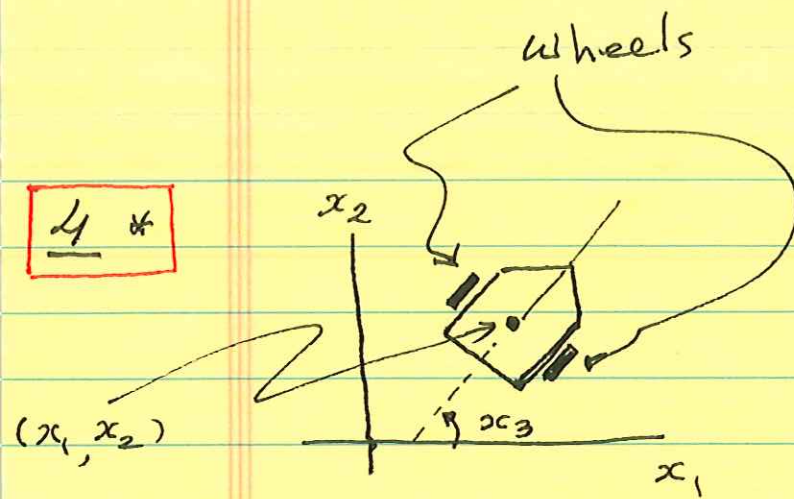 wheels
4 *
x₂
(x₁, x₂)
x₃
x₁